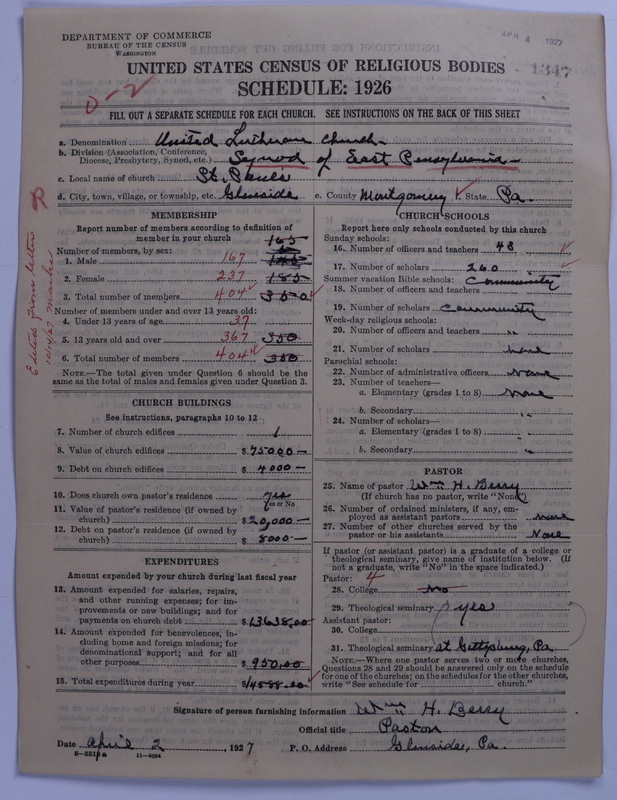 DEPARTMENT OF COMMERCE
BUREAU OF THE CENSUS
WASHINGTON
APR 4 1927
1347
UNITED STATES CENSUS OF RELIGIOUS BODIES
SCHEDULE: 1926
0-2
FILL OUT A SEPARATE SCHEDULE FOR EACH CHURCH. SEE INSTRUCTIONS ON THE BACK OF THIS SHEET
a. Denomination United Lutheran Church
b. Division (Association, Conference,
Diocese, Presbytery, Synod, etc.) Synod of East Pennsylvania
c. Local name of church St. Paul's
d. City, town, village, or township, etc. Glenside e. County Montgomery f. State Pa.
MEMBERSHIP
Report number of members according to definition of
member in your church
165
Number of members, by sex:
1. Male 167
2. Female 237 185
3. Total number of members 404 350
Number of members under and over 13 years old:
4. Under 13 years of age 37
5. 13 years old and over 367 350
6. Total number of members 404 350
NOTE.—The total given under Question 6 should be the
same as the total of males and females given under Question 3.
Edited from letter
10/4/27
CHURCH BUILDINGS
See instructions, paragraphs 10 to 12
7. Number of church edifices 1
8. Value of church edifices $ 75000—
9. Debt on church edifices $ 4000—
10. Does church own pastor's residence yes
Yes or No
11. Value of pastor's residence (if owned by
church) $ 20,000—
12. Debt on pastor's residence (if owned by
church) $ 8000—
EXPENDITURES
Amount expended by your church during last fiscal year
13. Amount expended for salaries, repairs,
and other running expenses; for im-
provements or new buildings; and for
payments on church debt $ 13638.00
14. Amount expended for benevolences, in-
cluding home and foreign missions; for
denominational support; and for all
other purposes $ 950.00
15. Total expenditures during year $ 14588.00
CHURCH SCHOOLS
Report here only schools conducted by this church
Sunday schools:
16. Number of officers and teachers 43
17. Number of scholars 260
Summer vacation Bible schools: Community
18. Number of officers and teachers
19. Number of scholars Community
Week-day religious schools:
20. Number of officers and teachers "
21. Number of scholars none
Parochial schools:
22. Number of administrative officers None
23. Number of teachers—
a. Elementary (grades 1 to 8) None
b. Secondary "
24. Number of scholars—
a. Elementary (grades 1 to 8) "
b. Secondary "
PASTOR
25. Name of pastor Wm H. Berry
(If church has no pastor, write "None")
26. Number of ordained ministers, if any, em-
ployed as assistant pastors none
27. Number of other churches served by the
pastor or his assistants None
If pastor (or assistant pastor) is a graduate of a college or
theological seminary, give name of institution below. (If
not a graduate, write "No" in the space indicated.)
Pastor: 4
28. College No
29. Theological seminary yes
Assistant pastor:
30. College
31. Theological seminary at Gettysburg, Pa
NOTE.—Where one pastor serves two or more churches,
Questions 28 and 29 should be answered only on the schedule
for one of the churches; on the schedules for the other churches,
write "See schedule for church."
Signature of person furnishing information Wm H. Berry
Official title Pastor
Date April 2, 1927 P. O. Address Glenside, Pa.
8-551a 11-9064